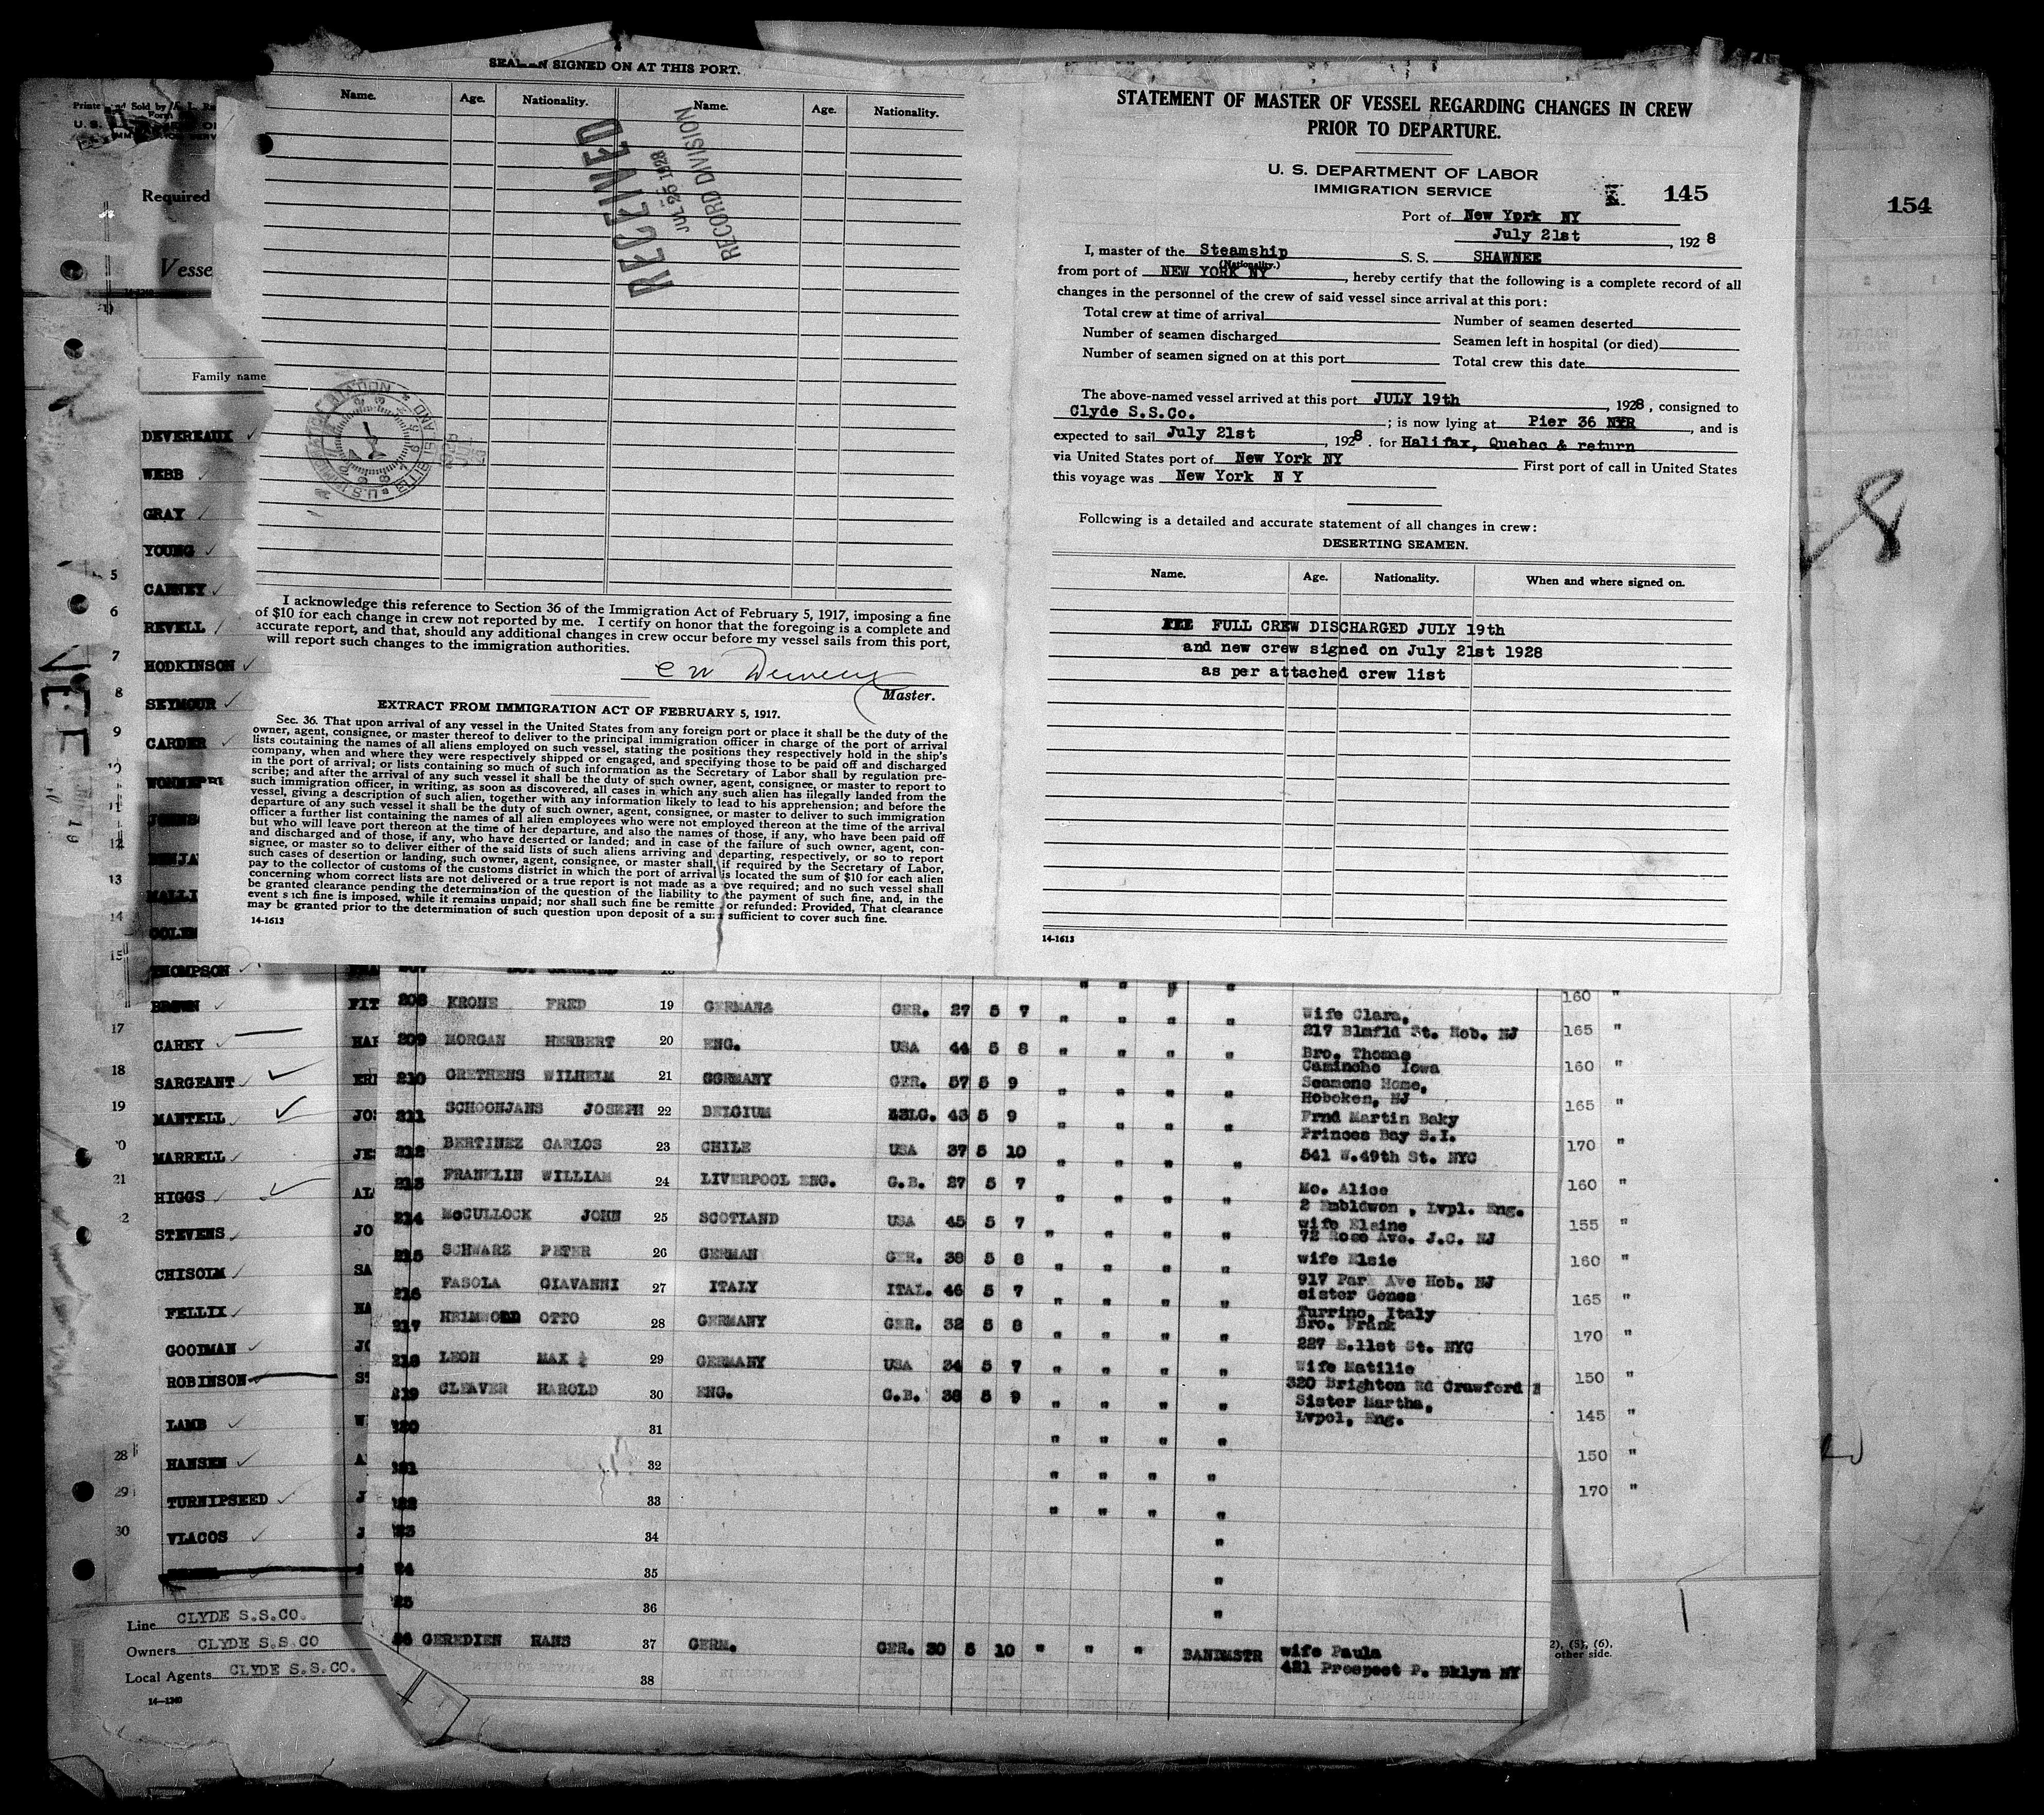 SEAMEN SIGNED ON AT THIS PORT.
Name. Age. Nationality. Name. Age. Nationality.
RECEIVED
JUL 25 1928
RECORD DIVISION
I acknowledge this reference to Section 36 of the Immigration Act of February 5, 1917, imposing a fine
of $10 for each change in crew not reported by me. I certify on honor that the foregoing is a complete and
accurate report, and that, should any additional changes in crew occur before my vessel sails from this port,
will report such changes to the immigration authorities.
Master.
EXTRACT FROM IMMIGRATION ACT OF FEBRUARY 5, 1917.
Sec. 36. That upon arrival of any vessel in the United States from any foreign port or place it shall be the duty of the
owner, agent, consignee, or master thereof to deliver to the principal immigration officer in charge of the port of arrival
lists containing the names of all aliens employed on such vessel, stating the positions they respectively hold in the ship's
company, when and where they were respectively shipped or engaged, and specifying those to be paid off and discharged
in the port of arrival; or lists containing so much of such information as the Secretary of Labor shall by regulation pre-
scribe; and after the arrival of any such vessel it shall be the duty of such owner, agent, consignee, or master to report to
such immigration officer, in writing, as soon as discovered, all cases in which any such alien has illegally landed from the
vessel, giving a description of such alien, together with any information likely to lead to his apprehension; and before the
departure of any such vessel it shall be the duty of such owner, agent, consignee, or master to deliver to such immigration
officer a further list containing the names of all alien employees who were not employed thereon at the time of the arrival
but who will leave port thereon at the time of her departure, and also the names of those, if any, who have been paid off
and discharged and of those, if any, who have deserted or landed; and in case of the failure of such owner, agent, con-
signee, or master so to deliver either of the said lists of such aliens arriving and departing, respectively, or so to report
such cases of desertion or landing, such owner, agent, consignee, or master shall, if required by the Secretary of Labor,
pay to the collector of customs of the customs district in which the port of arrival is located the sum of $10 for each alien
concerning whom correct lists are not delivered or a true report is not made as above required; and no such vessel shall
be granted clearance pending the determination of the question of the liability to the payment of such fine, and, in the
event such fine is imposed, while it remains unpaid; nor shall such fine be remitted or refunded: Provided, That clearance
may be granted prior to the determination of such question upon deposit of a sum sufficient to cover such fine.
14-1613
STATEMENT OF MASTER OF VESSEL REGARDING CHANGES IN CREW
PRIOR TO DEPARTURE.
U. S. DEPARTMENT OF LABOR
IMMIGRATION SERVICE
145
Port of New York NY
July 21st, 1928
I, master of the Steamship S. S. SHAWNEE
(Nationality.)
from port of NEW YORK NY, hereby certify that the following is a complete record of all
changes in the personnel of the crew of said vessel since arrival at this port:
Total crew at time of arrival Number of seamen deserted
Number of seamen discharged Seamen left in hospital (or died)
Number of seamen signed on at this port Total crew this date
The above-named vessel arrived at this port JULY 19th, 1928, consigned to
Clyde S.S.Co.; is now lying at Pier 36 NYR, and is
expected to sail July 21st, 1928. for Halifax, Quebec & return
via United States port of New York NY First port of call in United States
this voyage was New York N Y
Following is a detailed and accurate statement of all changes in crew:
DESERTING SEAMEN.
Name. Age. Nationality. When and where signed on.
FULL CREW DISCHARGED JULY 19th
and new crew signed on July 21st 1928
as per attached crew list
14-1613
154
8
Required
Vesse
14-1240
Family name
DEVEREAUX
WEBB
GRAY
YOUNG
5 CARNEY
6 REVELL
7 HODKINSON
8 SEYMOUR
9 CARDER
12
13 MALLI
14
15 THOMPSON
BROWN FIT
17 CAREY HAR
18 SARGEANT ERI
19 MANTELL JOS
MARRELL JE
21 HIGGS AL
STEVENS JO
CHISOLM SA
FELLIX HA
GOODMAN JO
ROBINSON
LAMB W
28 HANSEN A
29 TURNIPSEED J
30 VLACOS J
Line CLYDE S.S.CO.
Owners CLYDE S.S.CO
Local Agents CLYDE S.S.CO.
14-1240
208 KRONE FRED 19 GERMANS GER. 27 5 7 " " " " Wife Clara, 160 "
217 Blmfld St. Hob. NJ
209 MORGAN HERBERT 20 ENG. USA 44 5 8 " " " " Bro. Thomas 165 "
Caminche Iowa
210 GRETHENS WILHELM 21 GGRMANY GER. 57 5 9 " " " " Seamens Home, 160 "
Hoboken, NJ
211 SCHOONJANS JOSEPH 22 BELGIUM BELG. 43 5 9 " " " " Frnd Martin Baky 165 "
Princes Bay S.I.
212 BERTINEZ CARLOS 23 CHILE USA 37 5 10 " " " " 541 W.49th St. NYC 170 "
213 FRANKLIN WILLIAM 24 LIVERPOOL ENG. G.B. 27 5 7 " " " " Mo. Alice 160 "
2 Embldwon , Lvpl. Eng.
214 McCULLOCK JOHN 25 SCOTLAND USA 45 5 7 " " " " wife Elaine 155 "
72 Rose Ave. J.C. NJ
215 SCHWARZ PETER 26 GERMAN GER. 38 5 8 " " " " wife Elsie 160 "
917 Park Ave Hob. NJ
216 FASOLA GIAVANNI 27 ITALY ITAL. 46 5 7 " " " " sister Genes 165 "
Turrino, Italy
217 HEIMWORD OTTO 28 GERMANY GER. 32 5 8 " " " " Bro. Frank 170 "
227 E.11st St. NYC
218 LEON MAX 29 GERMANY USA 34 5 7 " " " " Wife Matilie 150 "
320 Brighton Rd Crawford
219 CLEAVER HAROLD 30 ENG. G.B. 38 5 9 " " " " Sister Martha, 145 "
Lvpol, Eng.
31 " " " " 150 "
32 " " " " 170 "
33 " " " "
34 "
35 "
36 "
GEREDIEN HANS 37 GERM. GER. 30 5 10 " " " BANDMSTR wife Paula
421 Prospect P. Bklyn NY
38
other side.